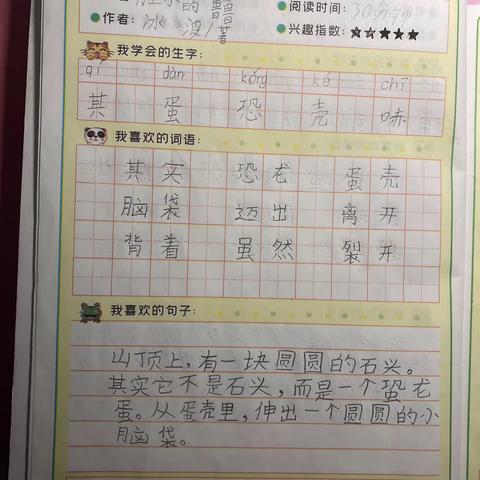 的
阅读时间：30分钟
作者：冰波/著
兴趣指数：
我学会的生字：
qí dàn kǒng ké chī
其 蛋 恐 壳 哧
我喜欢的词语：
其实 恐龙 蛋壳
脑袋 迈出 离开
背着 虽然 裂开
我喜欢的句子：
山顶上，有一块圆圆的石头。
其实它不是石头，而是一个恐龙
蛋。从蛋壳里，伸出一个圆圆的小
脑袋。